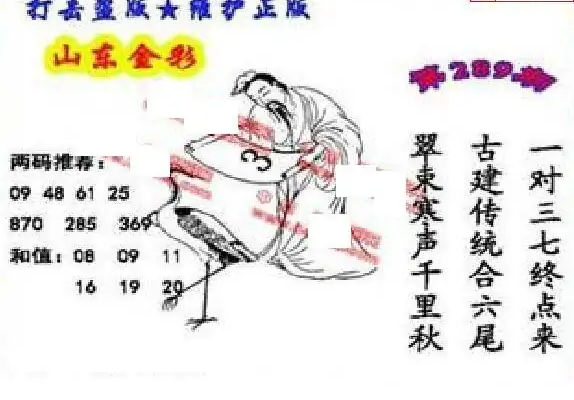 打击盗版★维护正版
山东金彩
第289期
两码推荐:
09 48 61 25
870 285 369
和值: 08 09 11
16 19 20
3
一对三七终点来
古建传统合六尾
翠束寒声千里秋